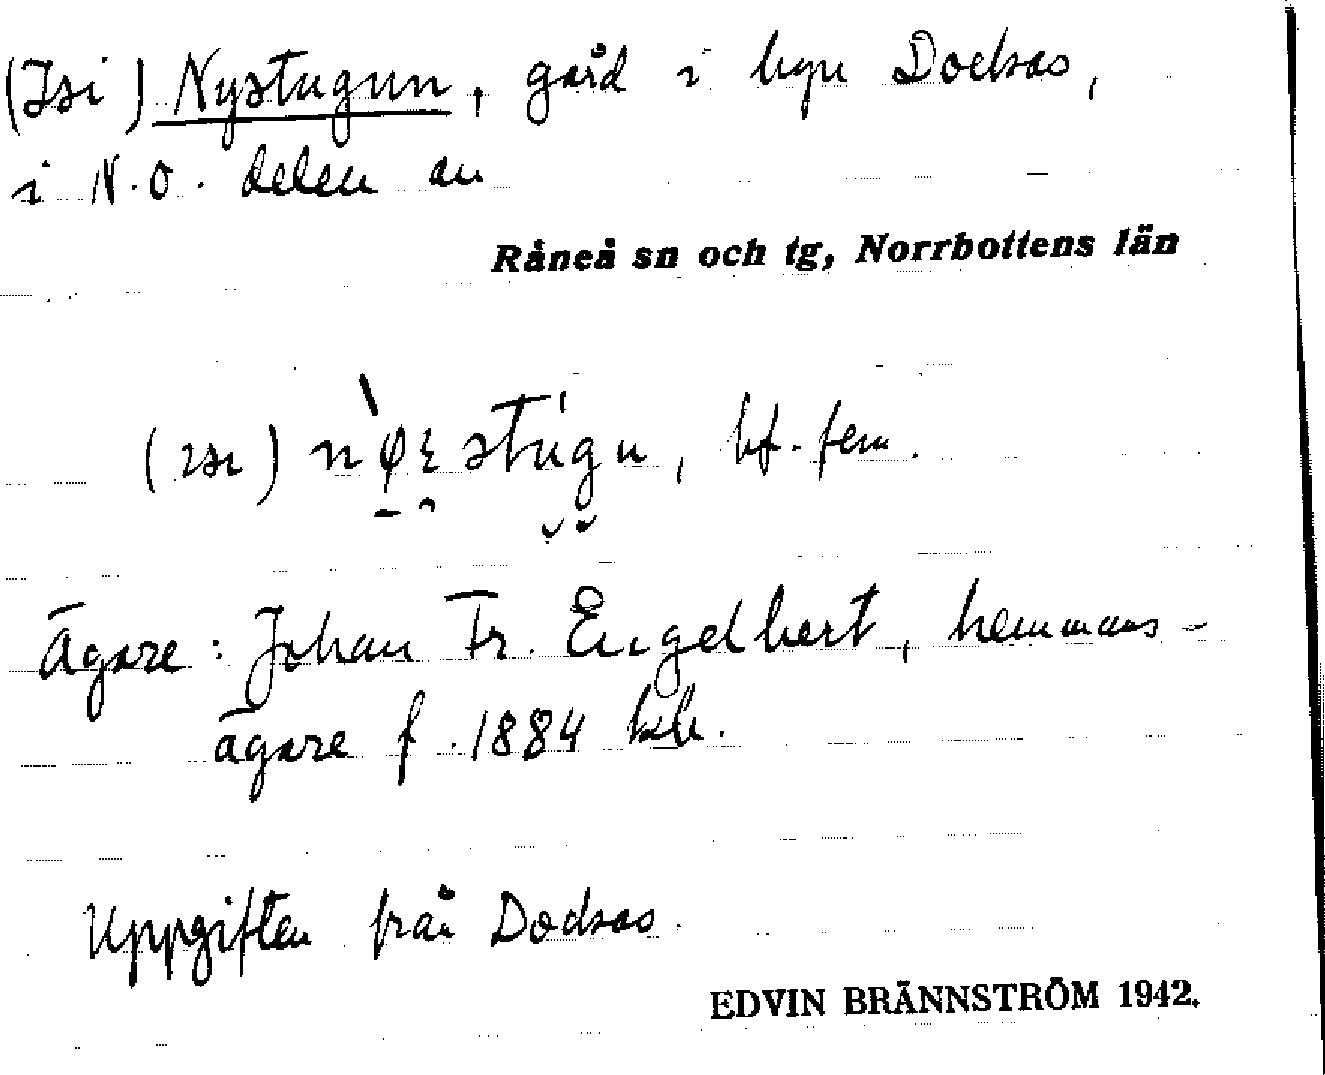 (Isi) Nystugun, gård i byn Dockas,
i N.O. delen av
Råneå sn och tg, Norrbottens län
(isi) bf. fem.
Ägare: Johan Fr. Engelbert, hemmans-
ägare f. 1884 hslr.
Uppgiften från Dockas.
EDVIN BRÄNNSTRÖM 1942.